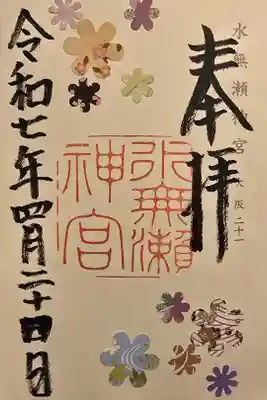 水無瀬神宮 大阪二十一
奉拝
水無瀬
神宮
令和七年四月二十四日